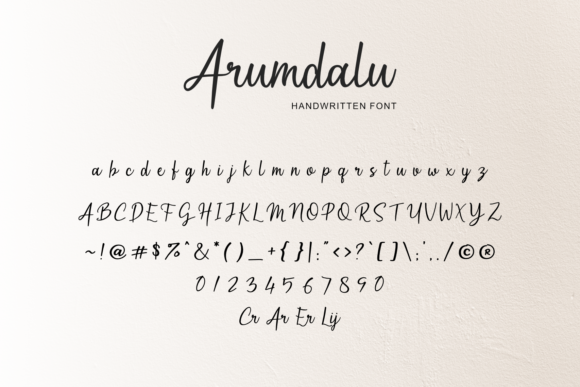 Arumdalu
HANDWRITTEN FONT
a b c d e f g h i j k l m n o p q r s t u v w x y z
A B C D E F G H I J K L M N O P Q R S T U V W X Y Z
~ ! @ # $ % ^ & * ( ) _ + { } | : " < > ? ` [ ] \ ; ' , . / © ®
0 1 2 3 4 5 6 7 8 9 0
Cr Ar Er Lij